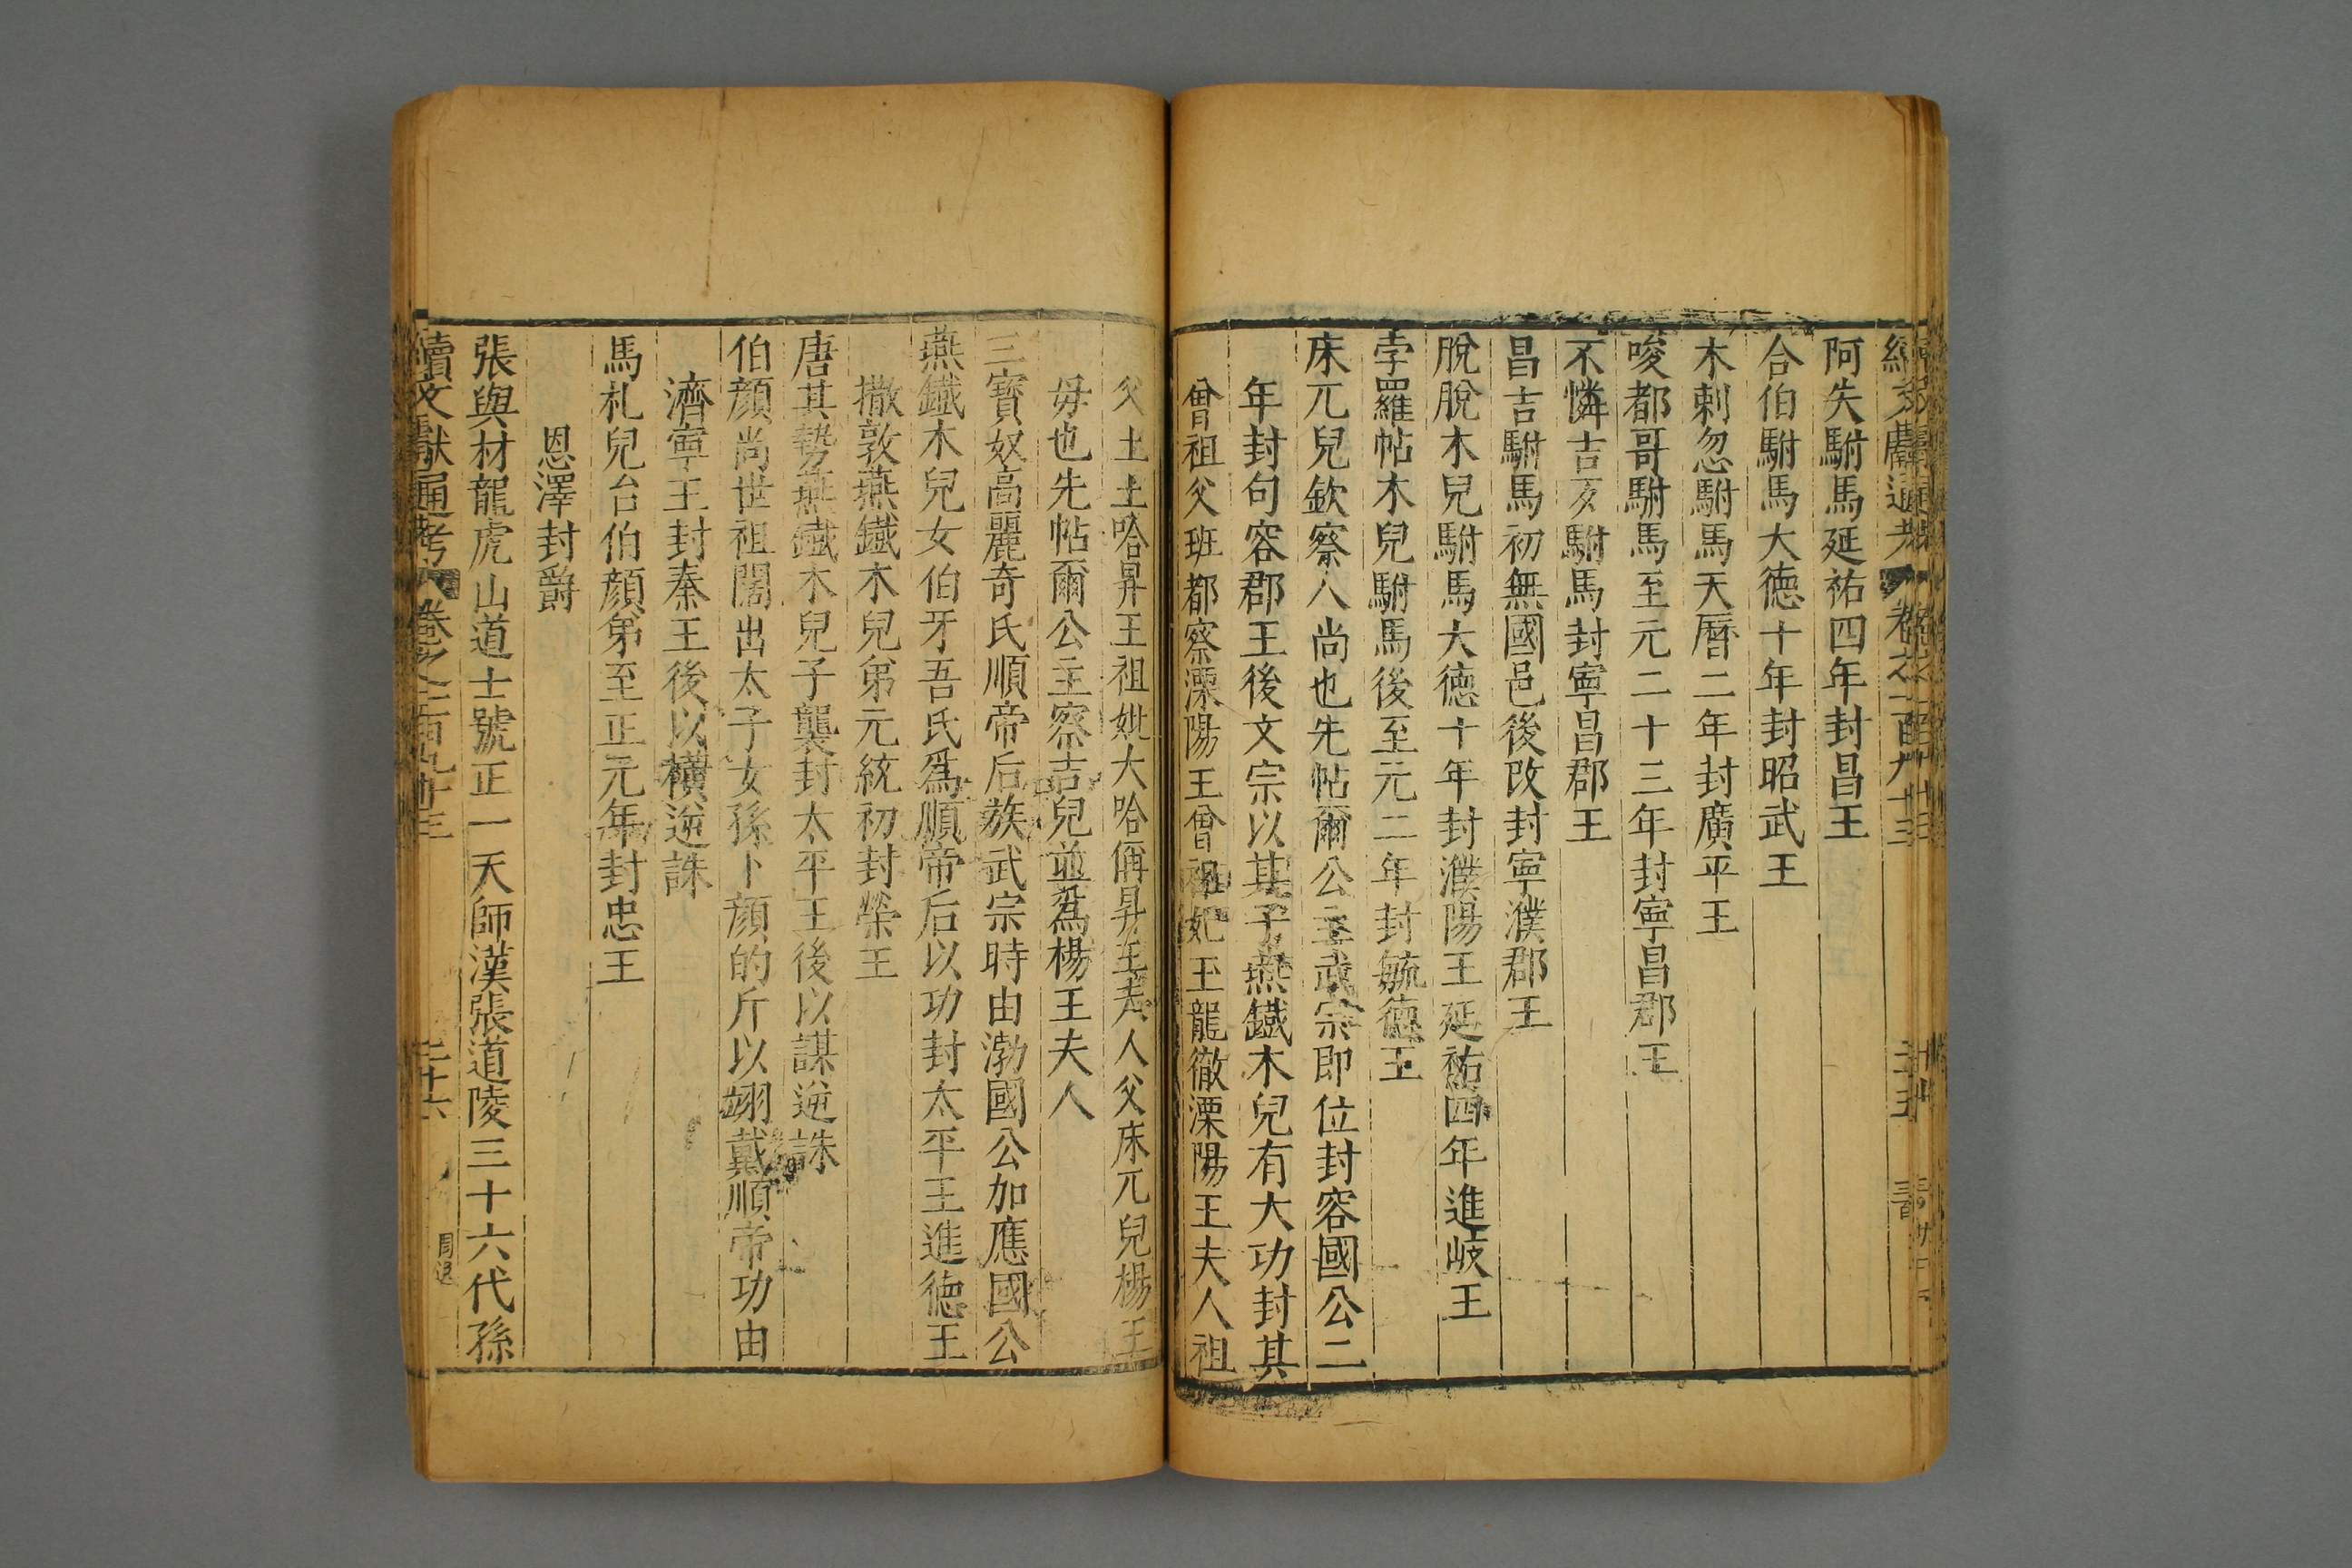 續文獻通考 卷之一百九十三 二十五
阿失駙馬延祐四年封昌王
合伯駙馬大德十年封昭武王
木剌忽駙馬天曆二年封廣平王
唆都哥駙馬至元二十三年封寧昌郡王
不憐吉歹駙馬封寧昌郡王
昌吉駙馬初無國邑後改封寧濮郡王
脫脫木兒駙馬大德十年封濮陽王延祐四年進岐王
孛羅帖木兒駙馬後至元二年封毓德王
床兀兒欽察人尚也先帖爾公主武宗即位封容國公二
年封句容郡王後文宗以其子燕鐵木兒有大功封其
曾祖父班都察溧陽王曾祖妣玉龍徹溧陽王夫人祖
父土土哈昇王祖妣大哈偁昇王夫人父床兀兒楊王
母也先帖爾公主察吉兒並爲楊王夫人
三寶奴高麗奇氏順帝后族武宗時由渤國公加應國公
燕鐵木兒女伯牙吾氏爲順帝后以功封太平王進德王
撒敦燕鐵木兒弟元統初封榮王
唐其勢燕鐵木兒子襲封太平王後以謀逆誅
伯顏尚世祖闊出太子女孫卜顏的斤以翊戴順帝功由
濟寧王封秦王後以橫逆誅
馬札兒台伯顏弟至正元年封忠王
恩澤封爵
張與材龍虎山道士號正一天師漢張道陵三十六代孫
續文獻通考 卷之一百九十三 二十六